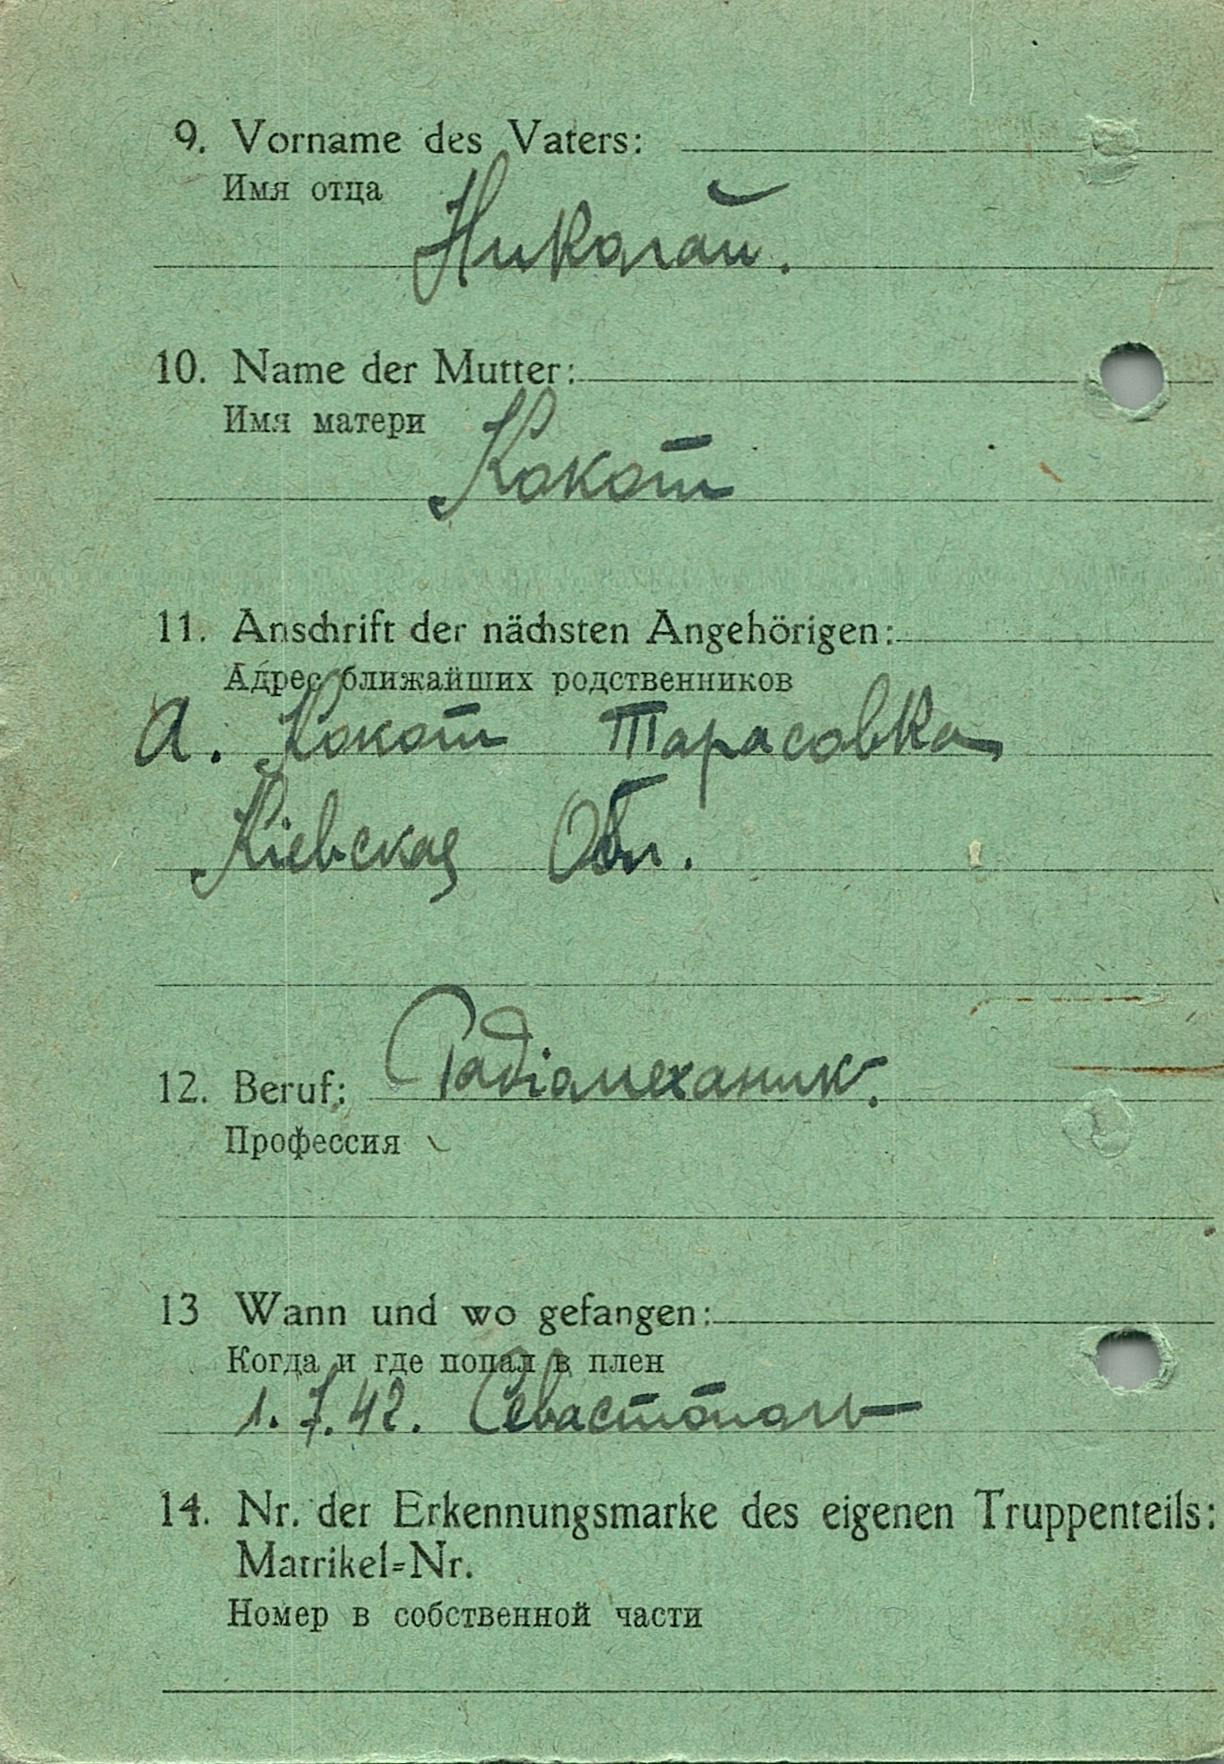 9. Vorname des Vaters:
Имя отца
Николай.
10. Name der Mutter:
Имя матери
Кокот
11. Anschrift der nächsten Angehörigen:
Адрес ближайших родственников
А. Кокот Тарасовка
Кіевская Обл.
12. Beruf: Радіомеханик.
Профессия
13 Wann und wo gefangen:
Когда и где попал в плен
1.7.42. Севастополь
14. Nr. der Erkennungsmarke des eigenen Truppenteils:
Matrikel=Nr.
Номер в собственной части